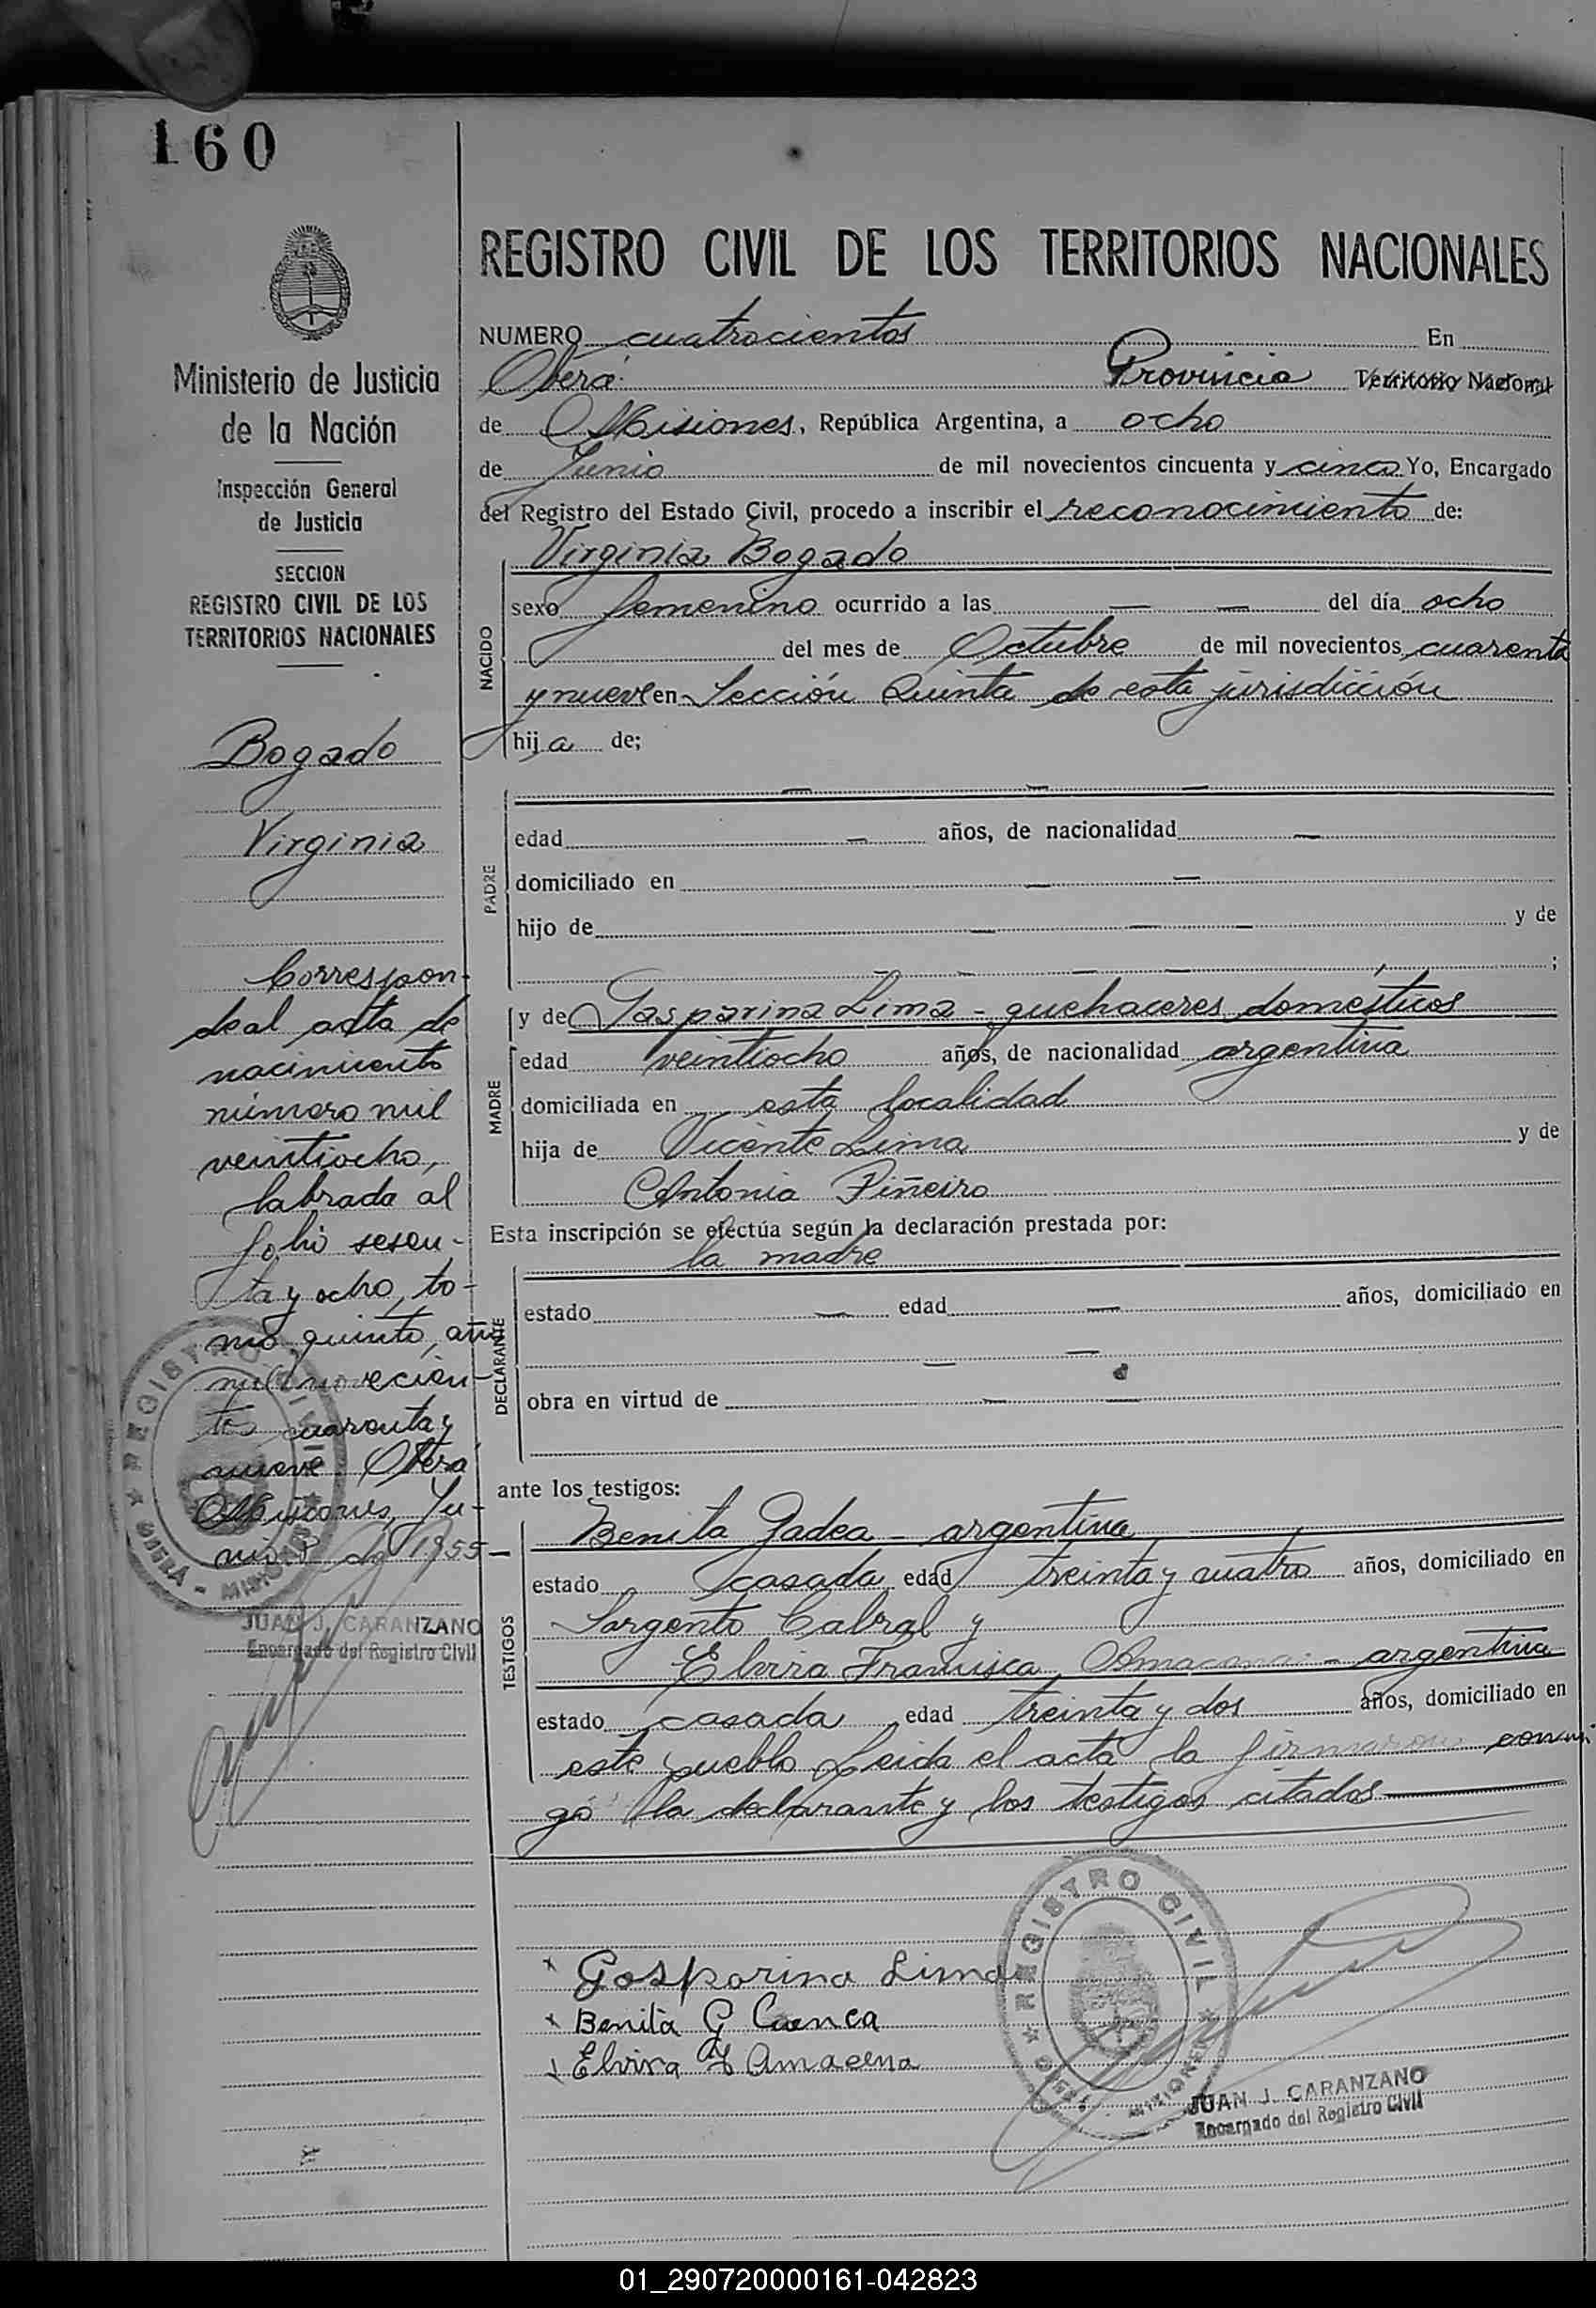 160
REGISTRO CIVIL DE LOS TERRITORIOS NACIONALES
NUMERO cuatrocientos En
Oberá Provincia Territorio Nacional
de Misiones, República Argentina, a ocho
de Junio de mil novecientos cincuenta y cinco Yo, Encargado
del Registro del Estado Civil, procedo a inscribir el reconocimiento de:
Virginia Bogado
NACIDO
sexo femenino ocurrido a las — — del día ocho
del mes de Octubre de mil novecientos cuarenta
y nueve en Sección Quinta de esta jurisdicción
hija de;
PADRE
edad — años, de nacionalidad —
domiciliado en — —
hijo de — — — y de
;
MADRE
y de Gasparina Lima - quehaceres domésticos
edad veintiocho años, de nacionalidad argentina
domiciliada en esta localidad
hija de Vicente Lima y de
Antonia Piñeiro
Esta inscripción se efectúa según la declaración prestada por:
la madre
DECLARANTE
estado — edad — años, domiciliado en
— —
obra en virtud de — —
ante los testigos:
TESTIGOS
Benita Gadea - argentina
estado casada edad treinta y cuatro años, domiciliado en
Sargento Cabral y
Elvira Francisca - argentina
estado casada edad treinta y dos años, domiciliado en
este pueblo Leida el acta la firmaron conmi
go la declarante y los testigos citados
Gosparina Lima
Benita G Cuenca
Elvira F Amacena
REGISTRO CIVIL
OBERA - MISIONES
JUAN J. CARANZANO
Encargado del Registro Civil
Ministerio de Justicia
de la Nación
Inspección General
de Justicia
SECCION
REGISTRO CIVIL DE LOS
TERRITORIOS NACIONALES
Bogado
Virginia
Correspon-
de al acta de
nacimiento
número mil
veintiocho,
labrada al
folio sesen-
ta y ocho, to-
mo quinto, año
mil novecien-
tos cuarenta y
nueve. Oberá
Misiones, Ju-
nio 8 de 1955 —
REGISTRO CIVIL
OBERA - MISIONES
JUAN J. CARANZANO
Encargado del Registro Civil
01_290720000161-042823